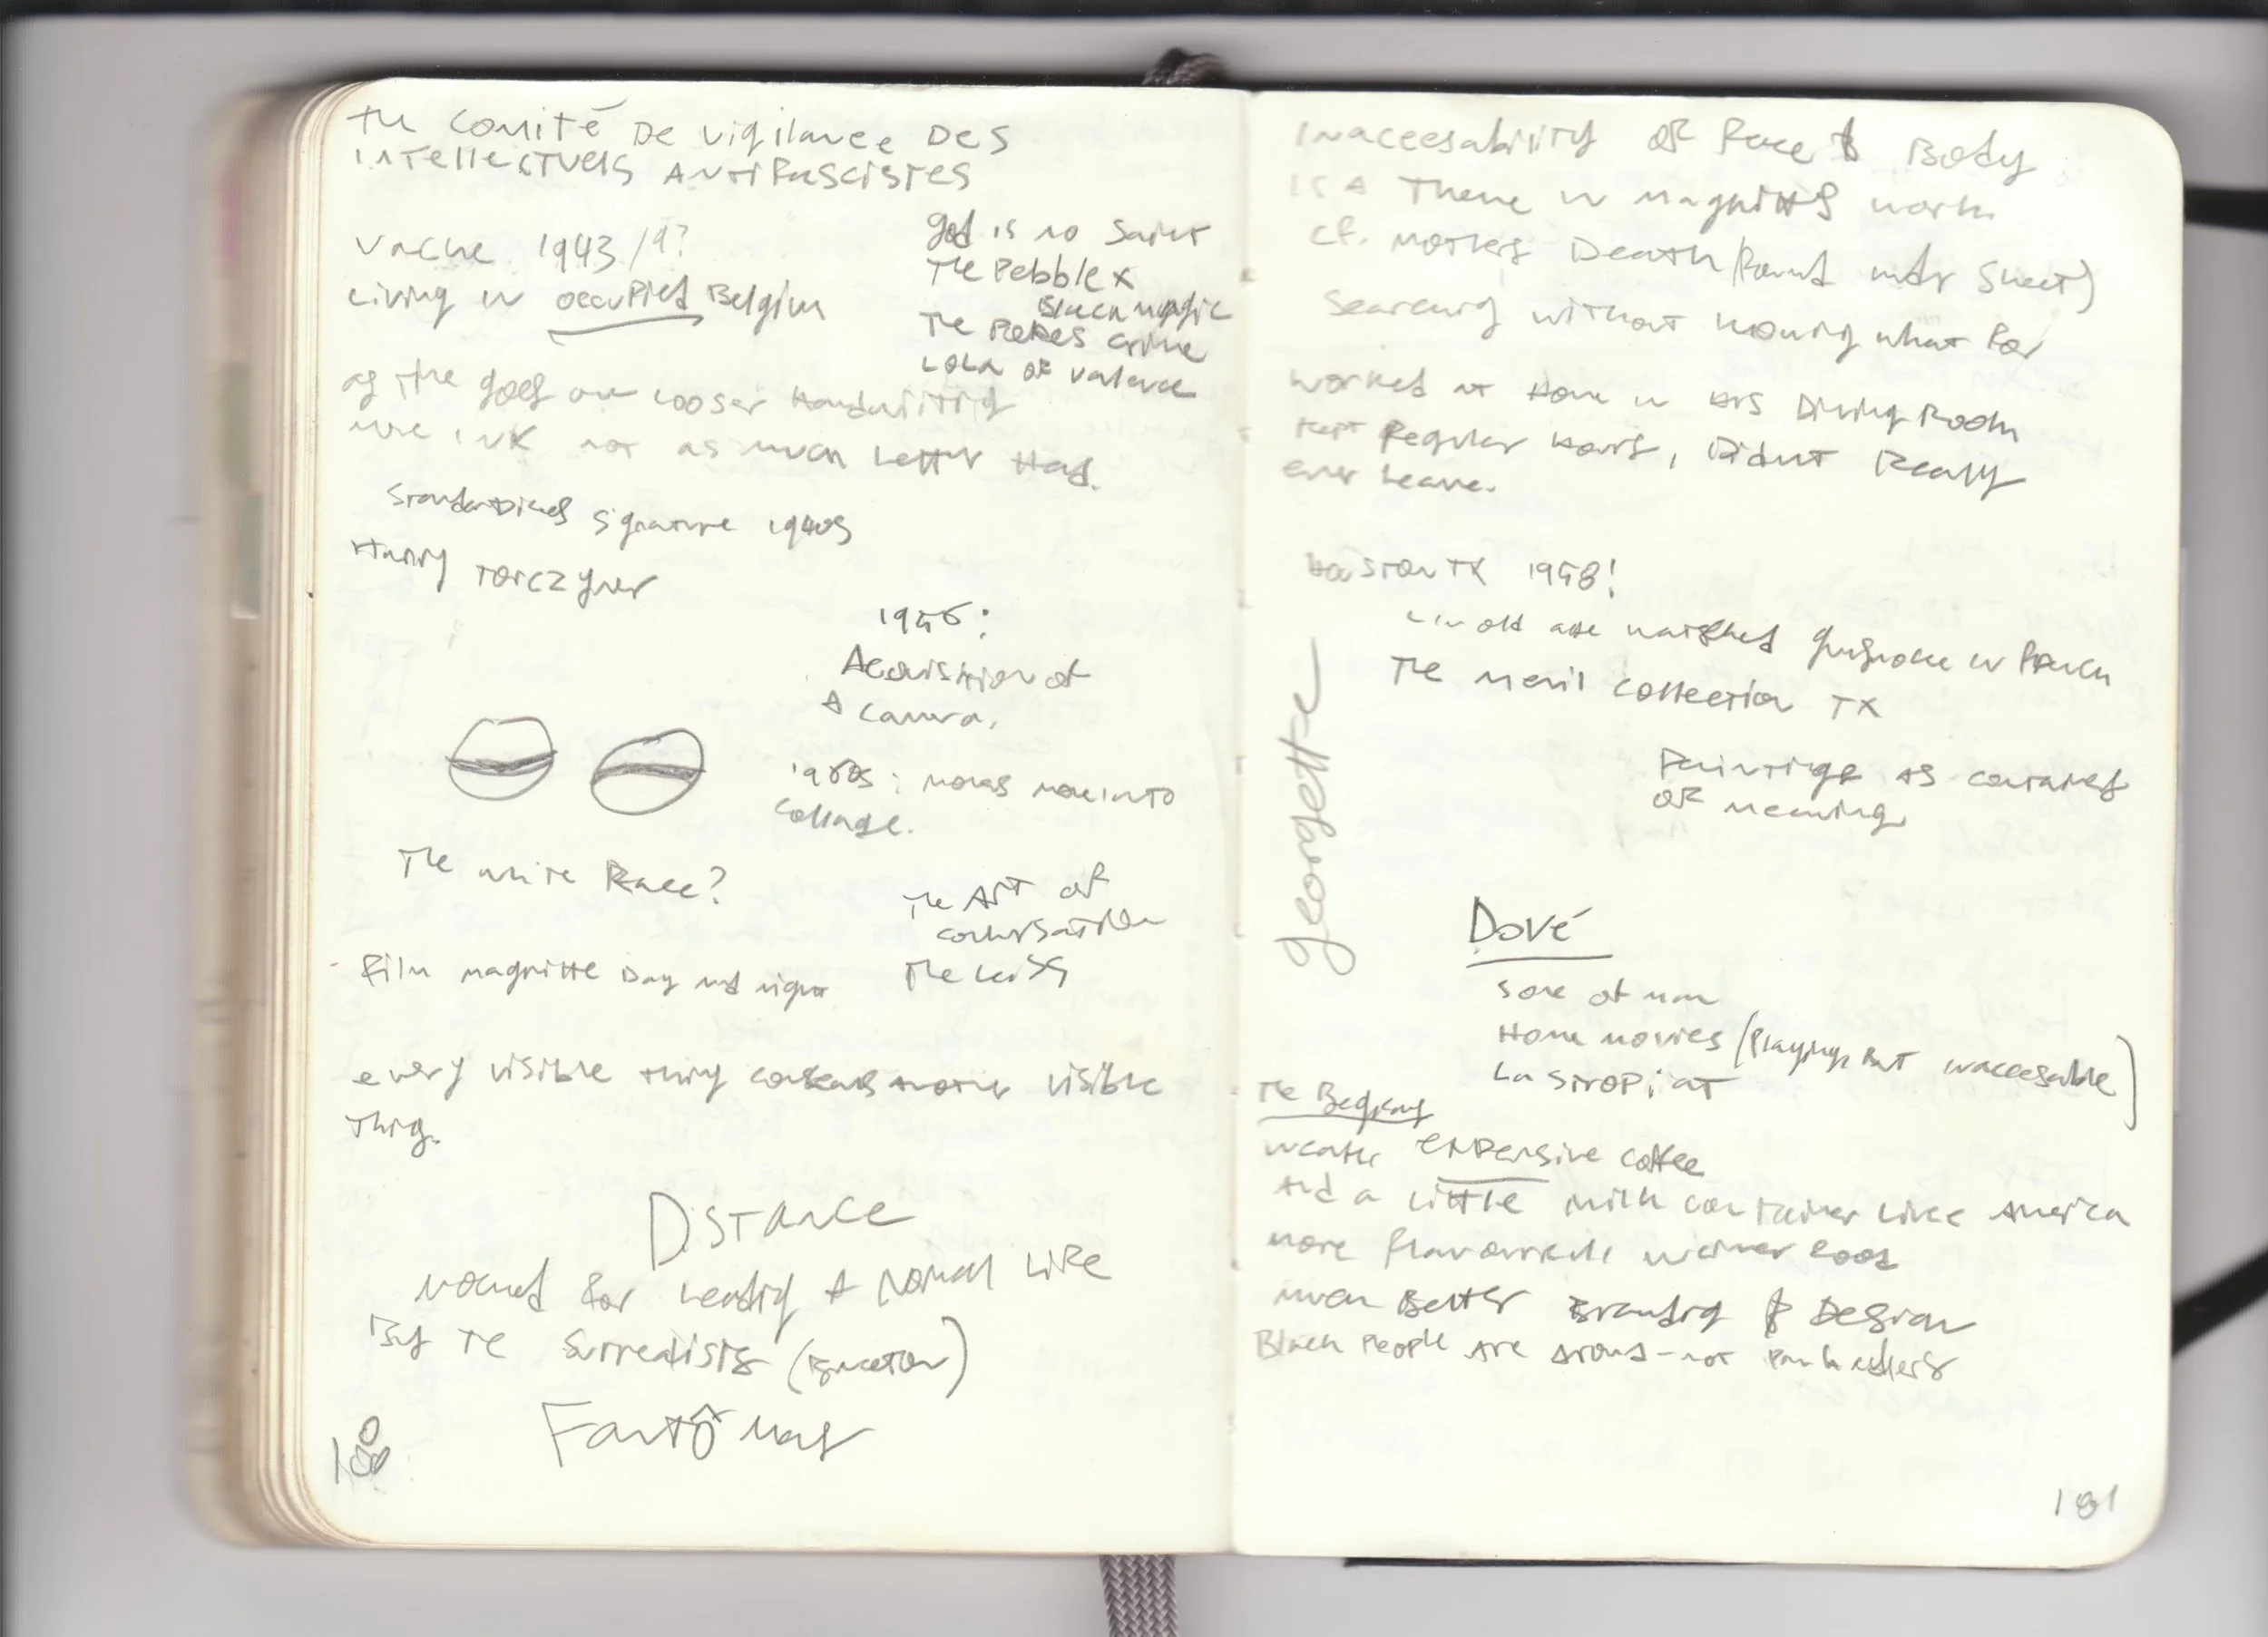 The Comité De Vigilance Des
Intellectuels Antifascistes
Vache 1943/4?
Living in occupied Belgium
God is no Saint
The Pebble x
Black Magic
The Crime
Lola of Valence
as he goes on looser Handwriting
more ink not as much Letter Head.
Standardized signature 1940s
Harry Torczyner
1956:
Acquisition of
A camera.
1960s: moves more into
collage.
The white Race?
The Art of
conversation
The Kiss
Film Magritte Day and night
every visible thing conceals another visible
thing.
Distance
mocked for leading A normal Life
By the Surrealists (Breton)
Fantômas
180
Inaccesability of Face & Body
is a Theme in Magrittes work
cf. Mothers Death (Found under Sheet)
Searching without knowing what for
worked at Home in His Dining Room
Kept Regular Hours, Didnt Really
ever Leave.
Houston TX 19 8!
in old age
The Menil Collection TX
Paintings as containers
of meaning
Georgette
Dové
Son of man
Home movies (Playing, But inaccesable)
La Stropiat
The
weaker expensive coffee
And a Little milk container Like America
more food
much Better Branding & Design
Black People are around - not
181